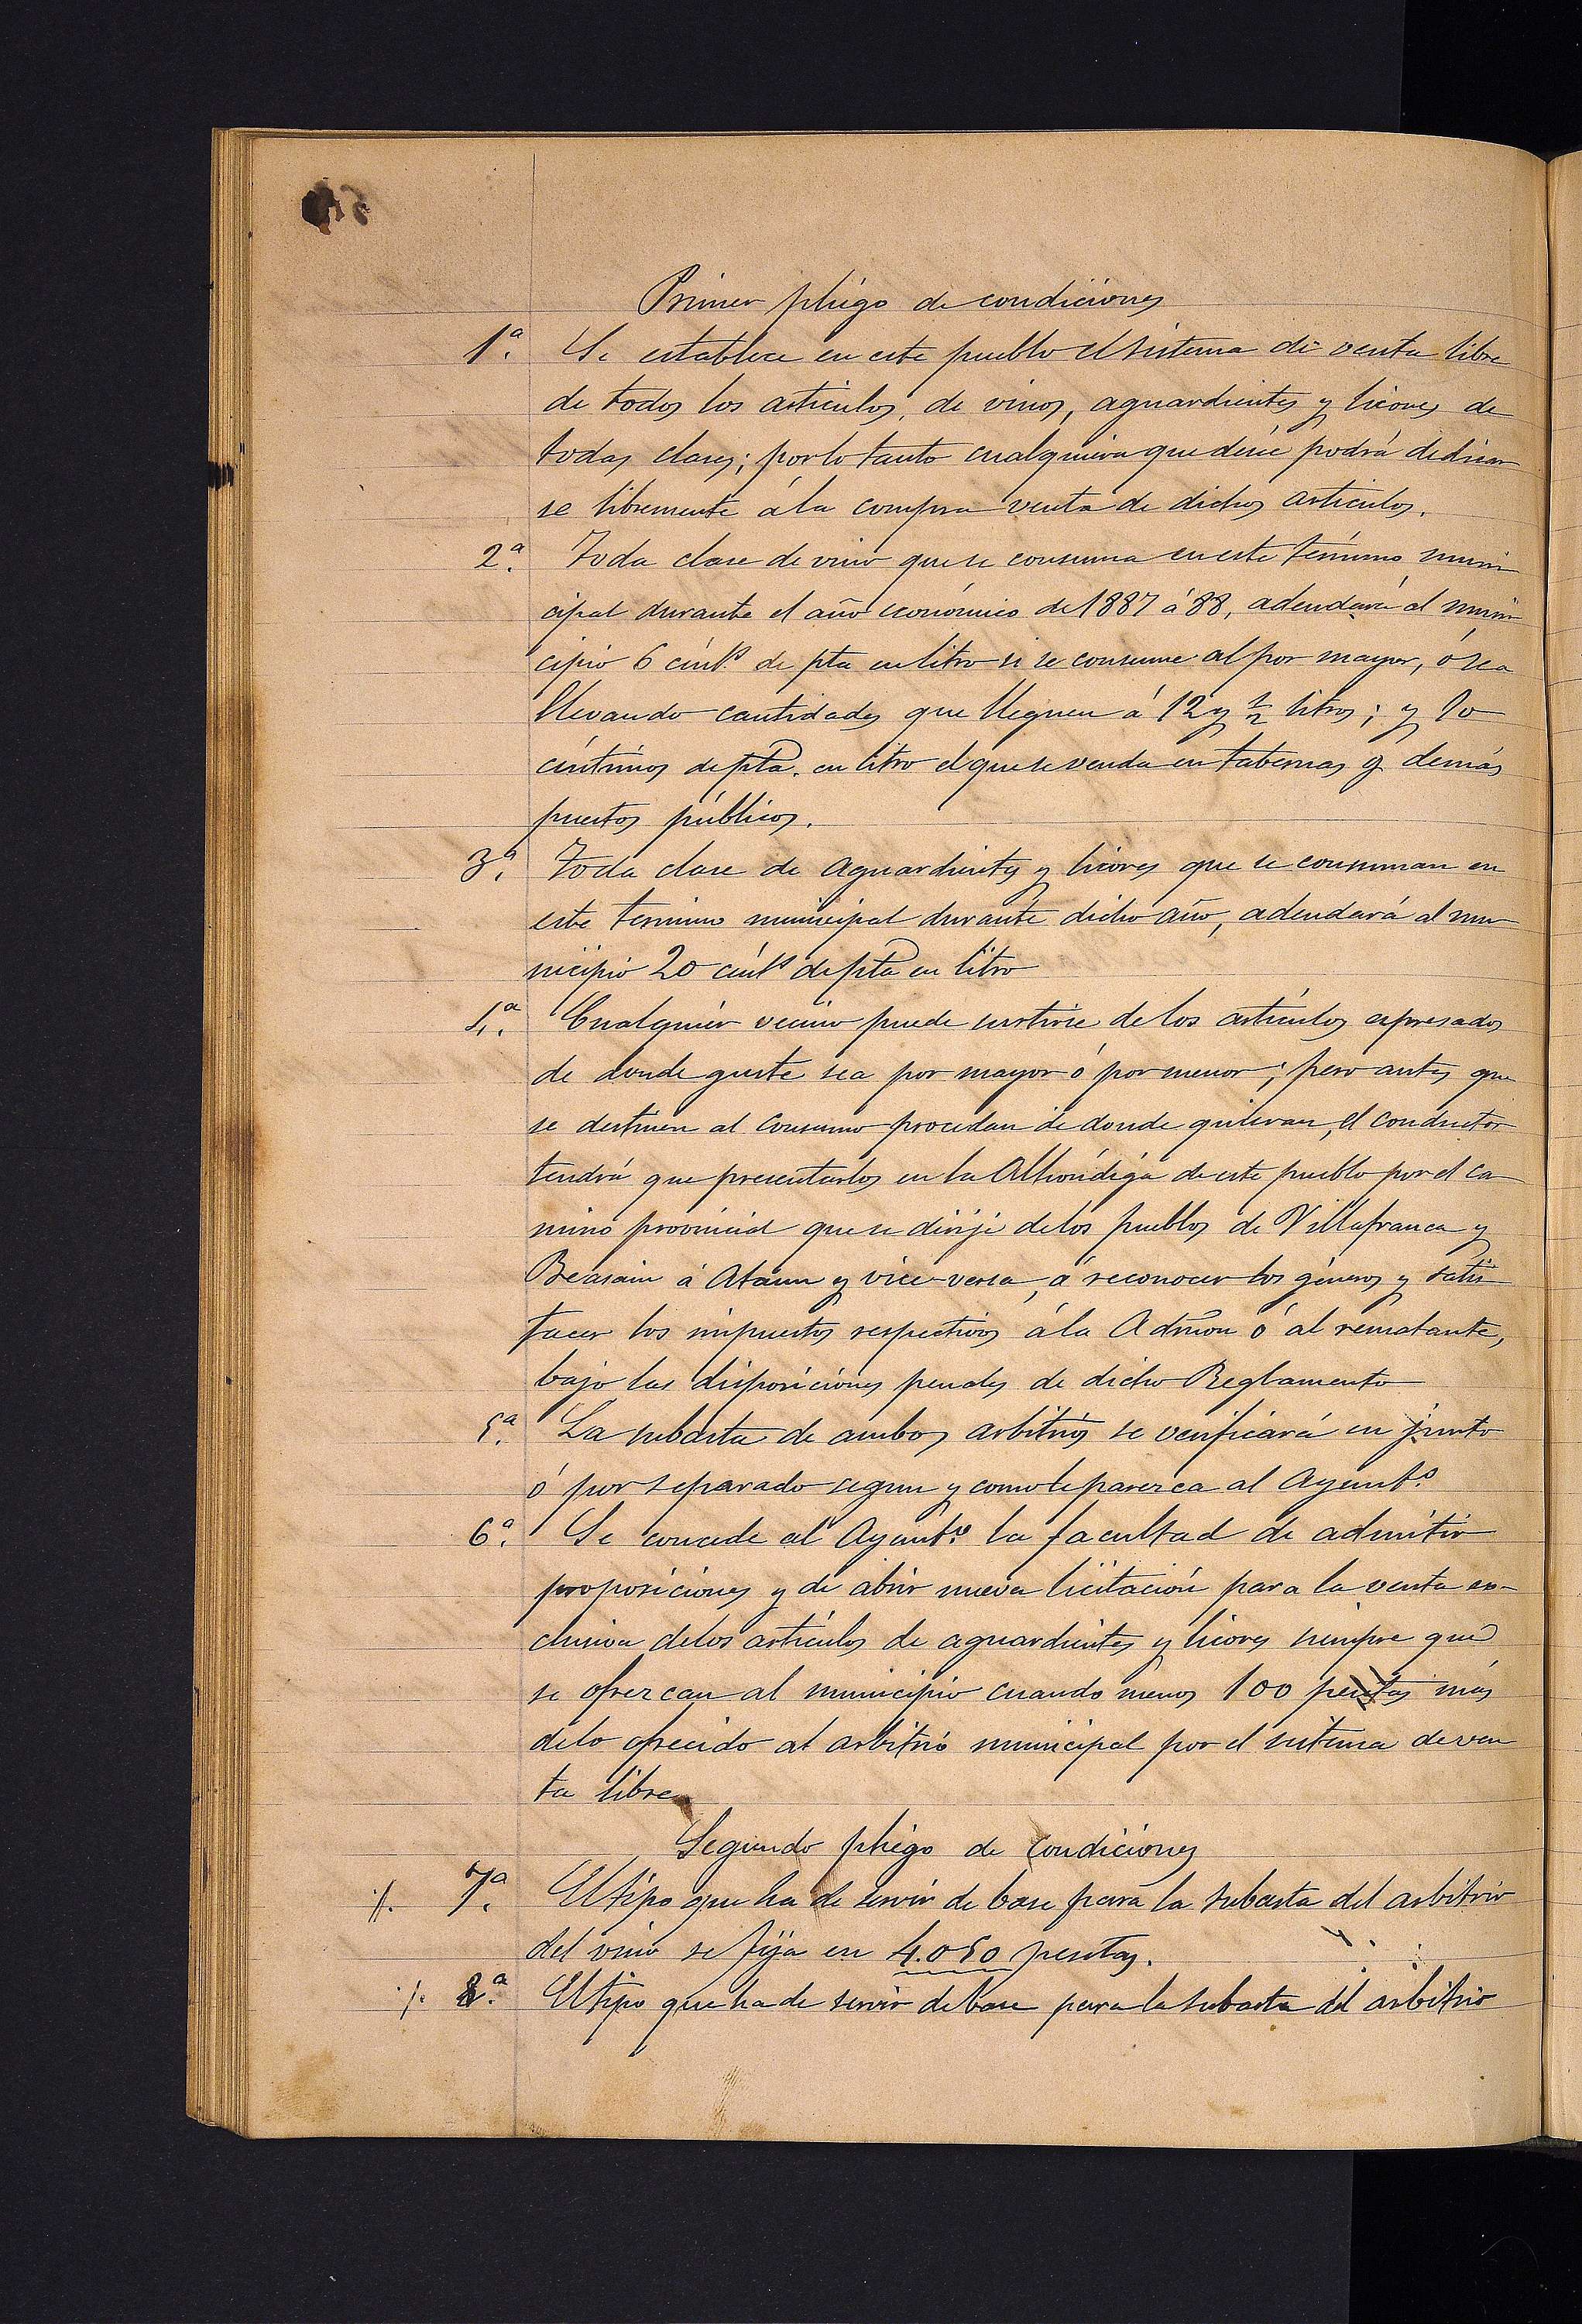 Primer pliego de condiciones
1ª. Se establece en este pueblo el sistema de venta libre
de todos los articulos, de vinos, aguardientes y licores de
todas clases; por lo tanto cualquiera que desee podrá dedicar
se libremente á la compra venta de dichos articulos.
2ª. Toda clase de vino que se consuma en este término muni
cipal durante el año económico de 1887 á 88, adeudará al muni
cipio 6 cént.s de pta en litro si se consume al por mayor, ó sea
llevando cantidades que lleguen á 12 y ½ litros; y 10
céntimos de pta. en litro el que se venda en tabernas y demás
puestos públicos.
3ª. Toda clase de aguardientes y licores que se consuman en
este termino municipal durante dicho año, adeudará al mu
nicipio 20 cént.s de pta en litro
4ª. Cualquier vecino puede surtirse de los artículos espresados
de donde guste sea por mayor ó por menor; pero antes que
se destinen al consumo procedan de donde quieran, el conductor
tendrá que presentarlos en la Alhóndiga de este pueblo por el ca
mino provincial que se dirije de los pueblos de Villafranca y
Beasain á Ataun y vice-versa, á reconocer los géneros y satis
facer los impuestos respectivos á la Admon ó al rematante,
bajo las disposiciones penales de dicho Reglamento
5ª. La subasta de ambos arbitrios se verificará en junto
ó por separado segun y como le parezca al Ayunt.o
6ª. Se concede al Ayunt.o la facultad de admitir
proposiciones y de abrir nueva licitación para la venta ex-
clusiva de los artículos de aguardientes y licores siempre que
se ofrezcan al municipio cuando menos 100 pesetas más
de lo ofrecido al arbitrio municipal por el sistema de ven
ta libre
Segundo pliego de condiciones
7ª. El tipo que ha de servir de base para la subasta del arbitrio
del vino se fija en 4.050 pesetas.
8ª. El tipo que ha de servir de base para la subasta del arbitrio